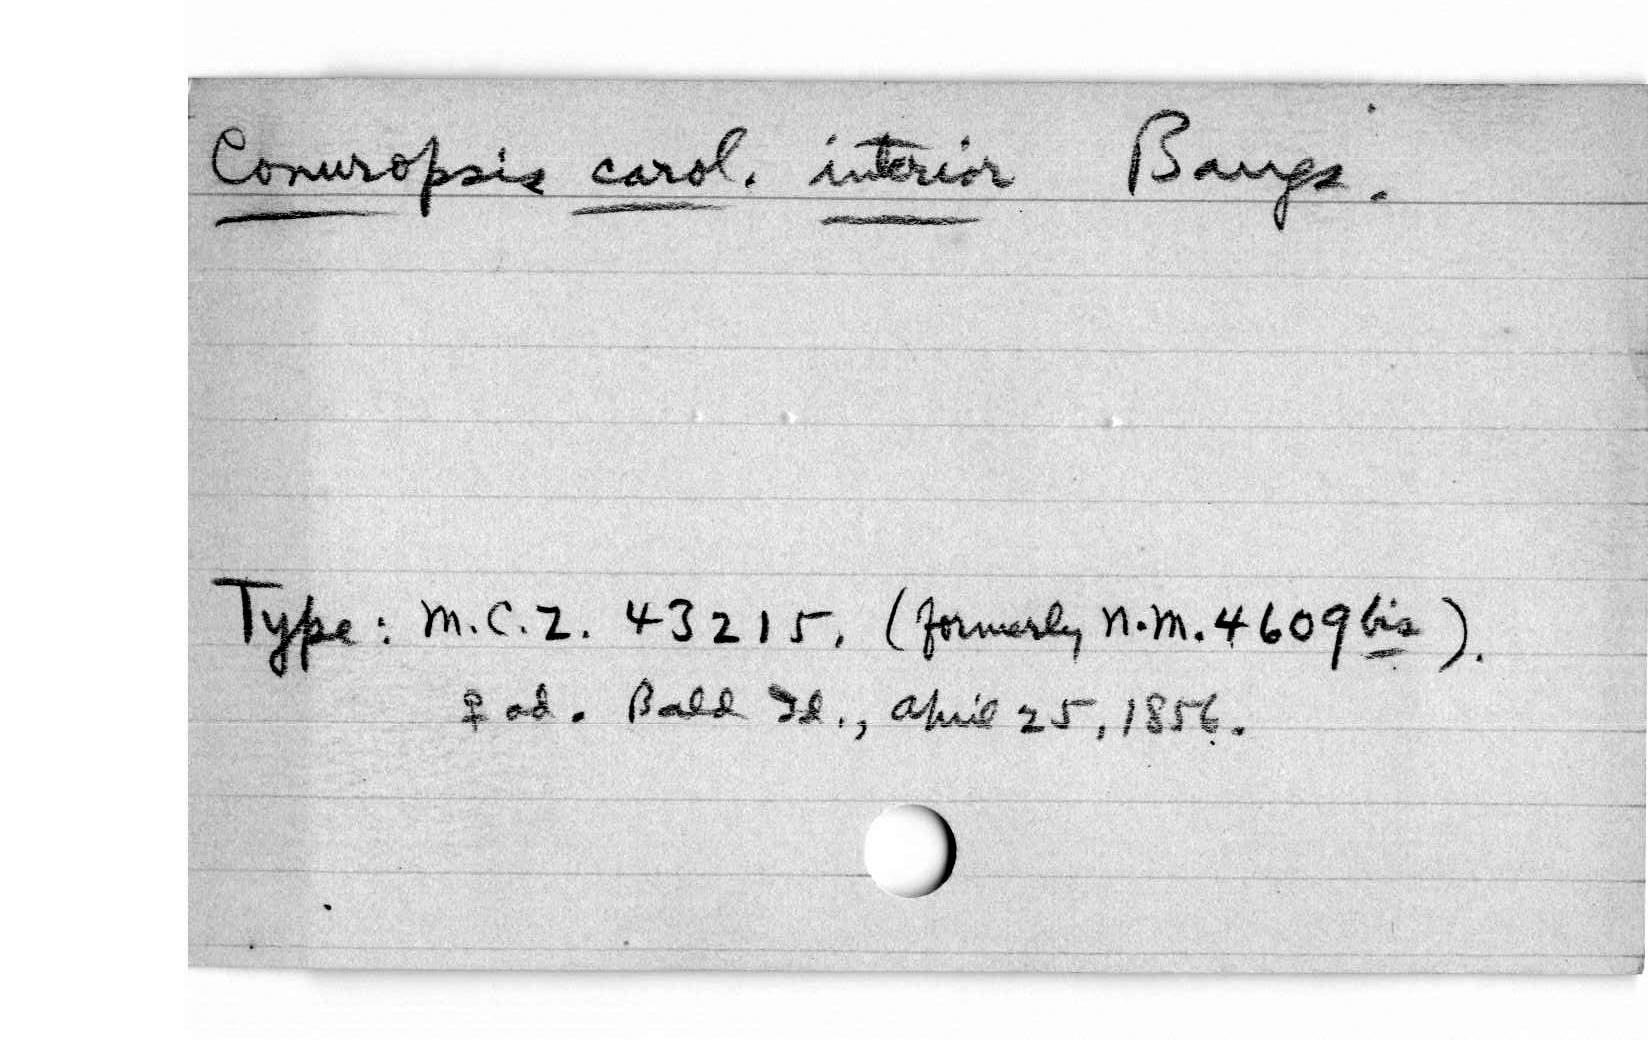 Conuropsis carol. interior Bangs.
Type: M.C.Z. 43215. (formerly N.M. 4609 bis).
♀ ad. Bald Id., April 25, 1856.